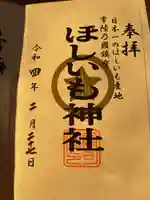 奉拝
日本一のほしいも産地
常陸乃國鎮守
ほしいも神社
令和四年二月二十七日